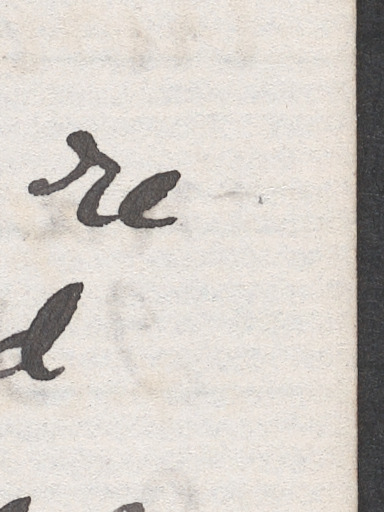 re
d